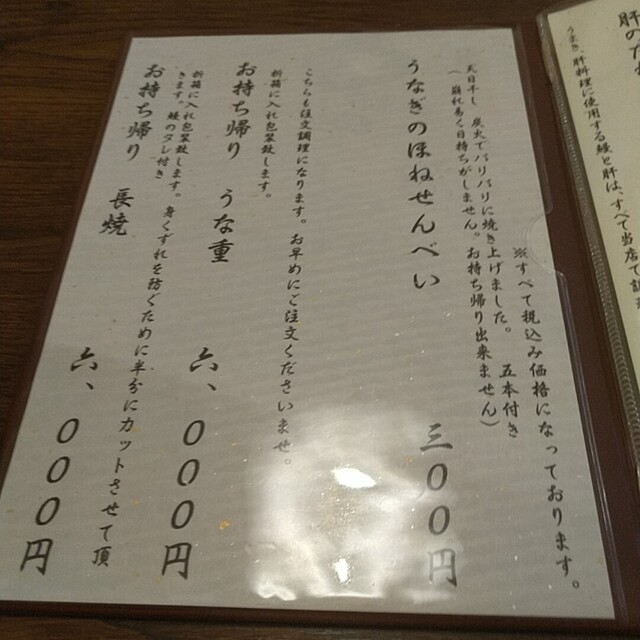 肝の
うまき・肝料理に使用する鰻と肝は、すべて当店で
※すべて税込み価格になっております。
天日干し、炭火でパリパリに焼き上げました。 五本付き
（崩れ易く日持ちがしません。お持ち帰り出来ません）
うなぎのほねせんべい 三００円
こちらも注文調理になります。お早めにご注文くださいませ。
折箱に入れ包装致します。
お持ち帰り うな重 六、０００円
折箱に入れ包装致します。身くずれを防ぐために半分にカットさせて頂
きます。鰻のタレ付き
お持ち帰り 長焼 六、０００円